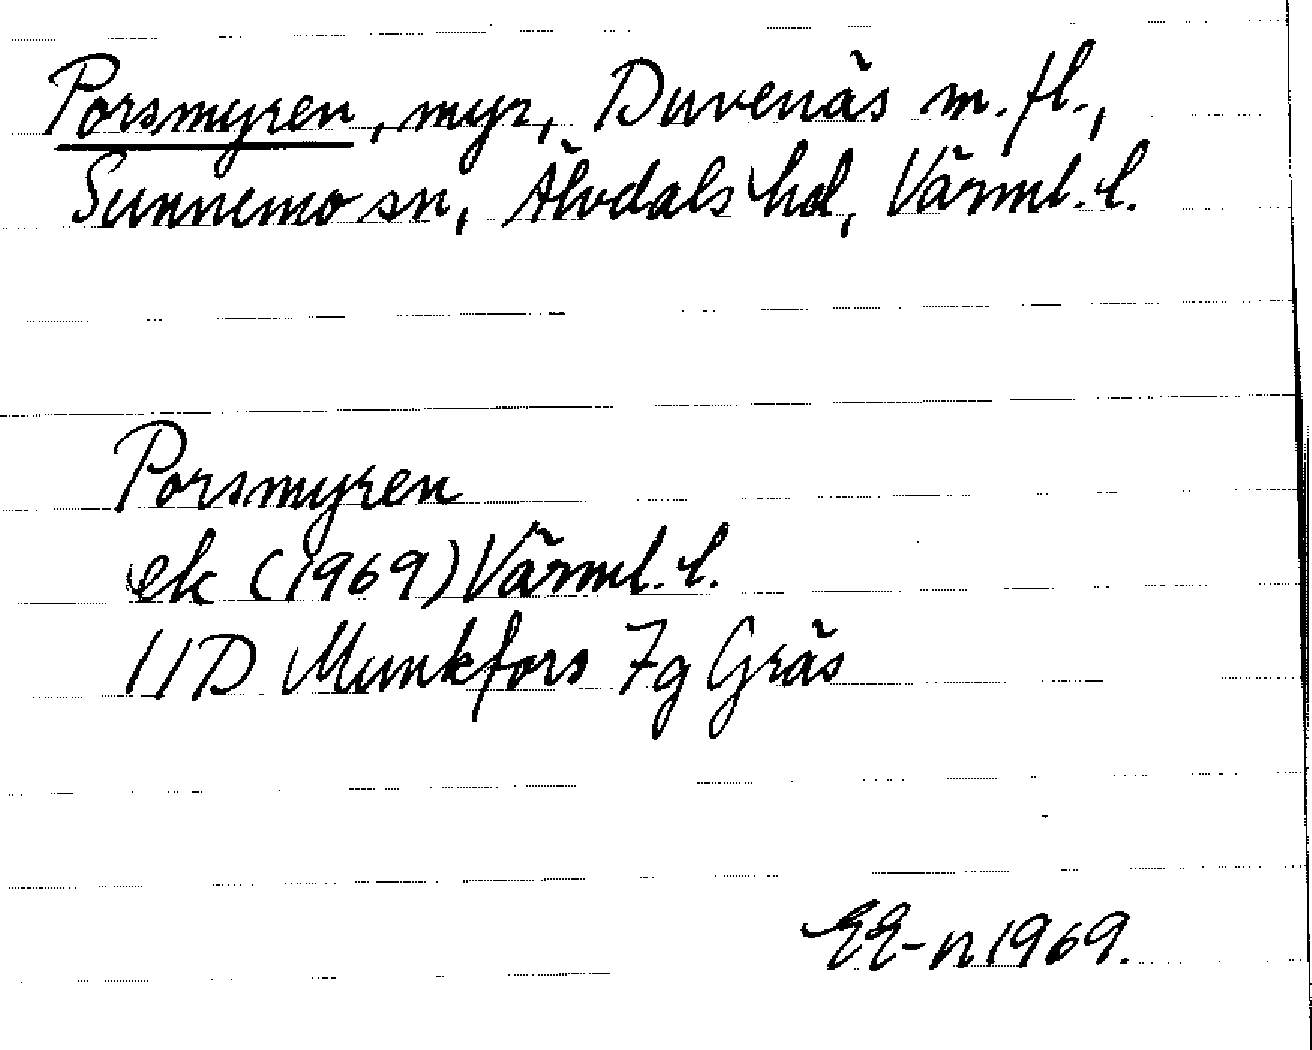 Porsmyren, myr, Duvenäs m.fl.,
Sunnemo sn, Älvdals hd, Värml. l.
Porsmyren
ek (1969) Värml. l.
11D Munkfors 7g Gräs
EE-n 1969.